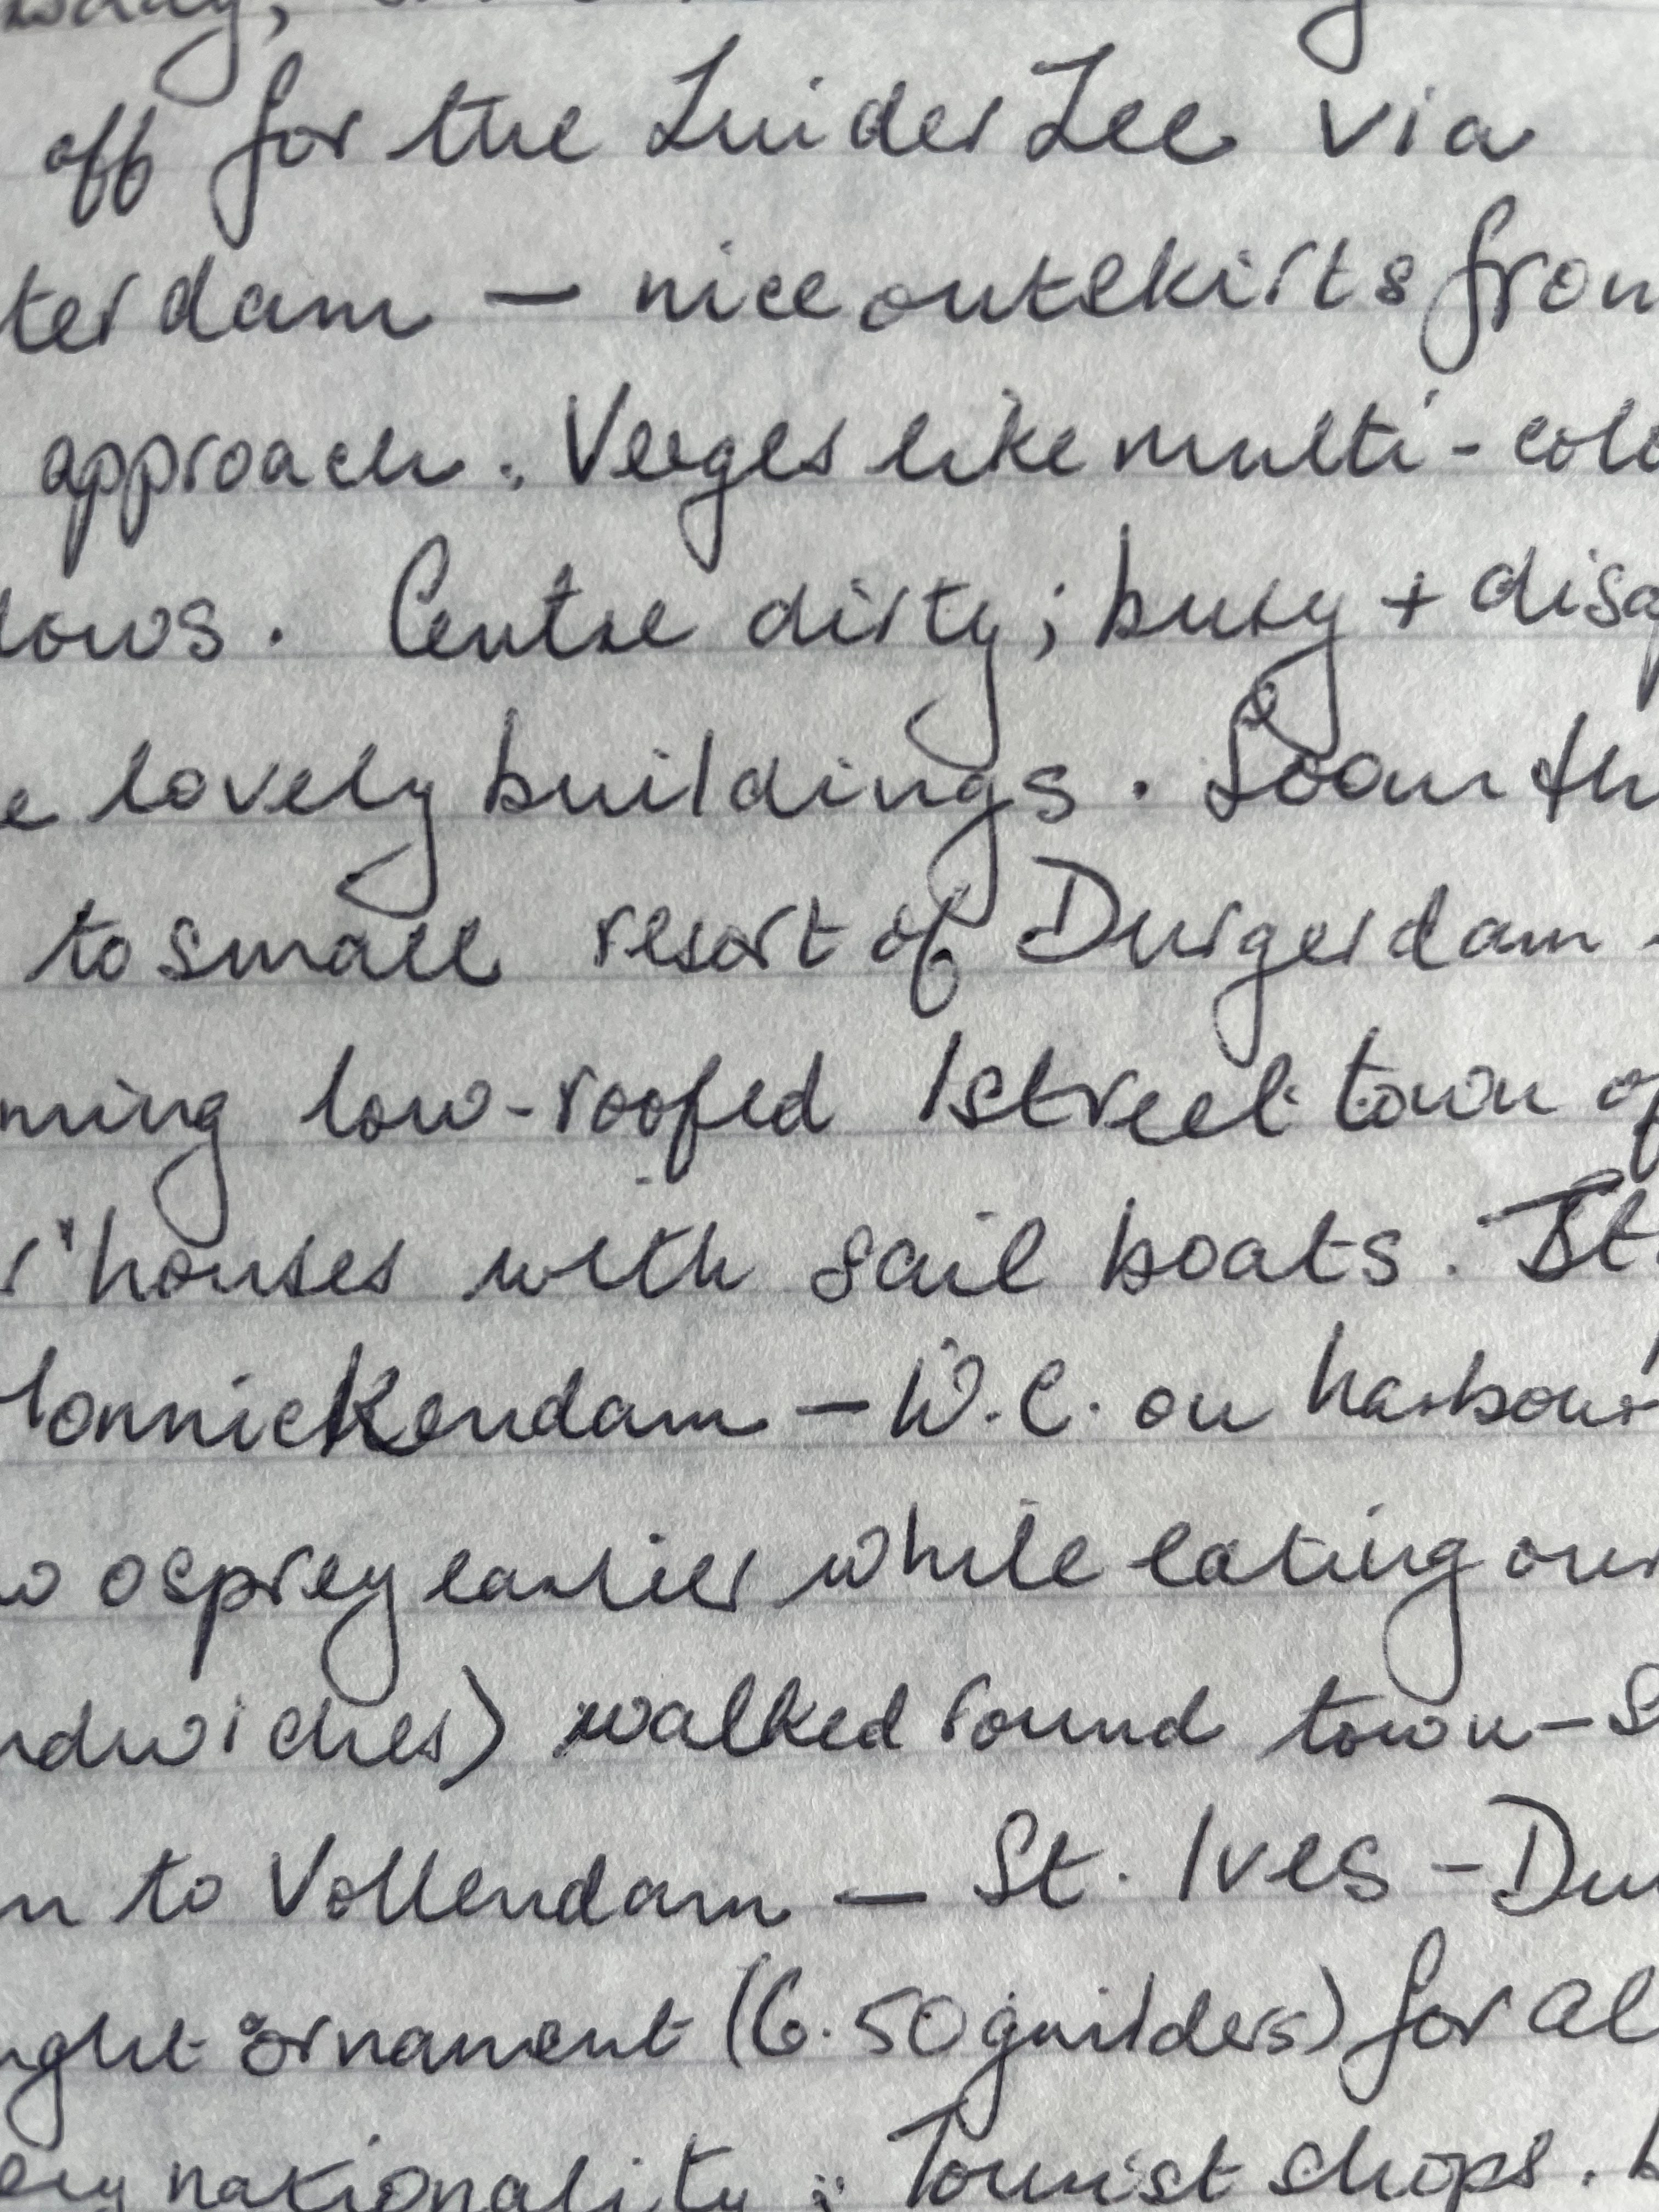 off for the Zuider Zee via
terdam — nice outskirts from
approach. Verges like multi-colo
lows. Centre dirty; busy + disa
e lovely buildings. Soon th
to small resort of Durgerdam -
ming low-roofed 1 street town of
r' houses with sail boats. It.
Monnickendam — W.C. on harbour
w osprey earlier while eating our
ndwiches) walked round town – S
n to Vollendam — St. Ives – Du
ught ornament (6.50 guilders) for al
ery nationality; Tourist shops.